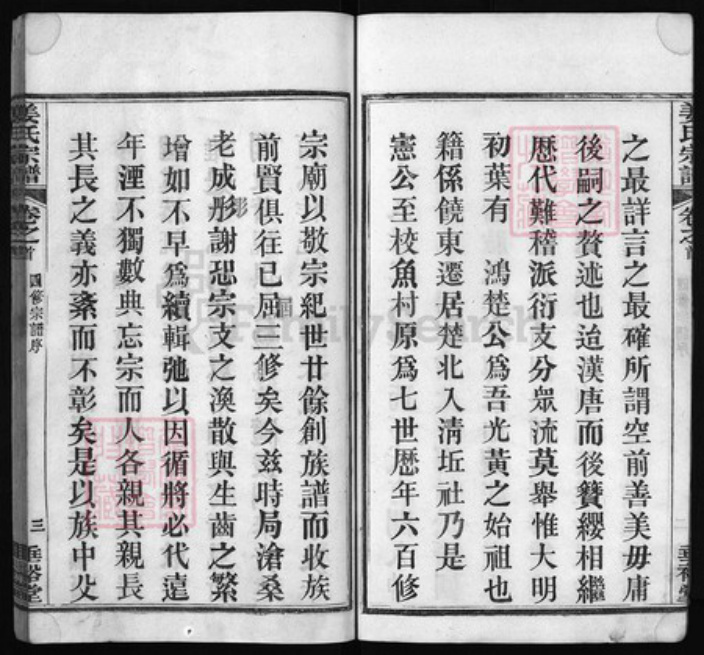 之最詳言之最確所謂空前善美毋庸
後嗣之贅述也迨漢唐而後簪纓相繼
歷代難稽派衍支分眾流莫舉惟大明
初葉有 鴻楚公爲吾光黃之始祖也
籍係饒東遷居楚北入淸坵社乃是
憲公至校魚村原爲七世歷年六百修
宗廟以敬宗紀世廿餘創族譜而收族
前賢俱往已屆三修矣今茲時局滄桑
老成彤謝恐宗支之渙散與生齒之繁
增如不早爲續輯弛以因循將必代遠
年湮不獨數典忘宗而人各親其親長
其長之義亦紊而不彰矣是以族中父
姜氏宗譜
卷之首
四修宗譜序
三
垂裕堂
姜氏宗譜
卷之首
垂裕堂
FamilySearch